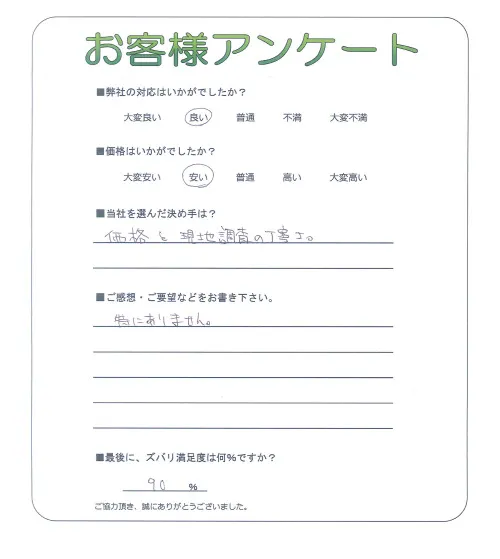 お客様アンケート
■弊社の対応はいかがでしたか？
大変良い 良い 普通 不満 大変不満
■価格はいかがでしたか？
大変安い 安い 普通 高い 大変高い
■当社を選んだ決め手は？
価格と現地調査の丁寧さ。
■ご感想・ご要望などをお書き下さい。
特にありません。
■最後に、ズバリ満足度は何%ですか？
90 %
ご協力頂き、誠にありがとうございました。